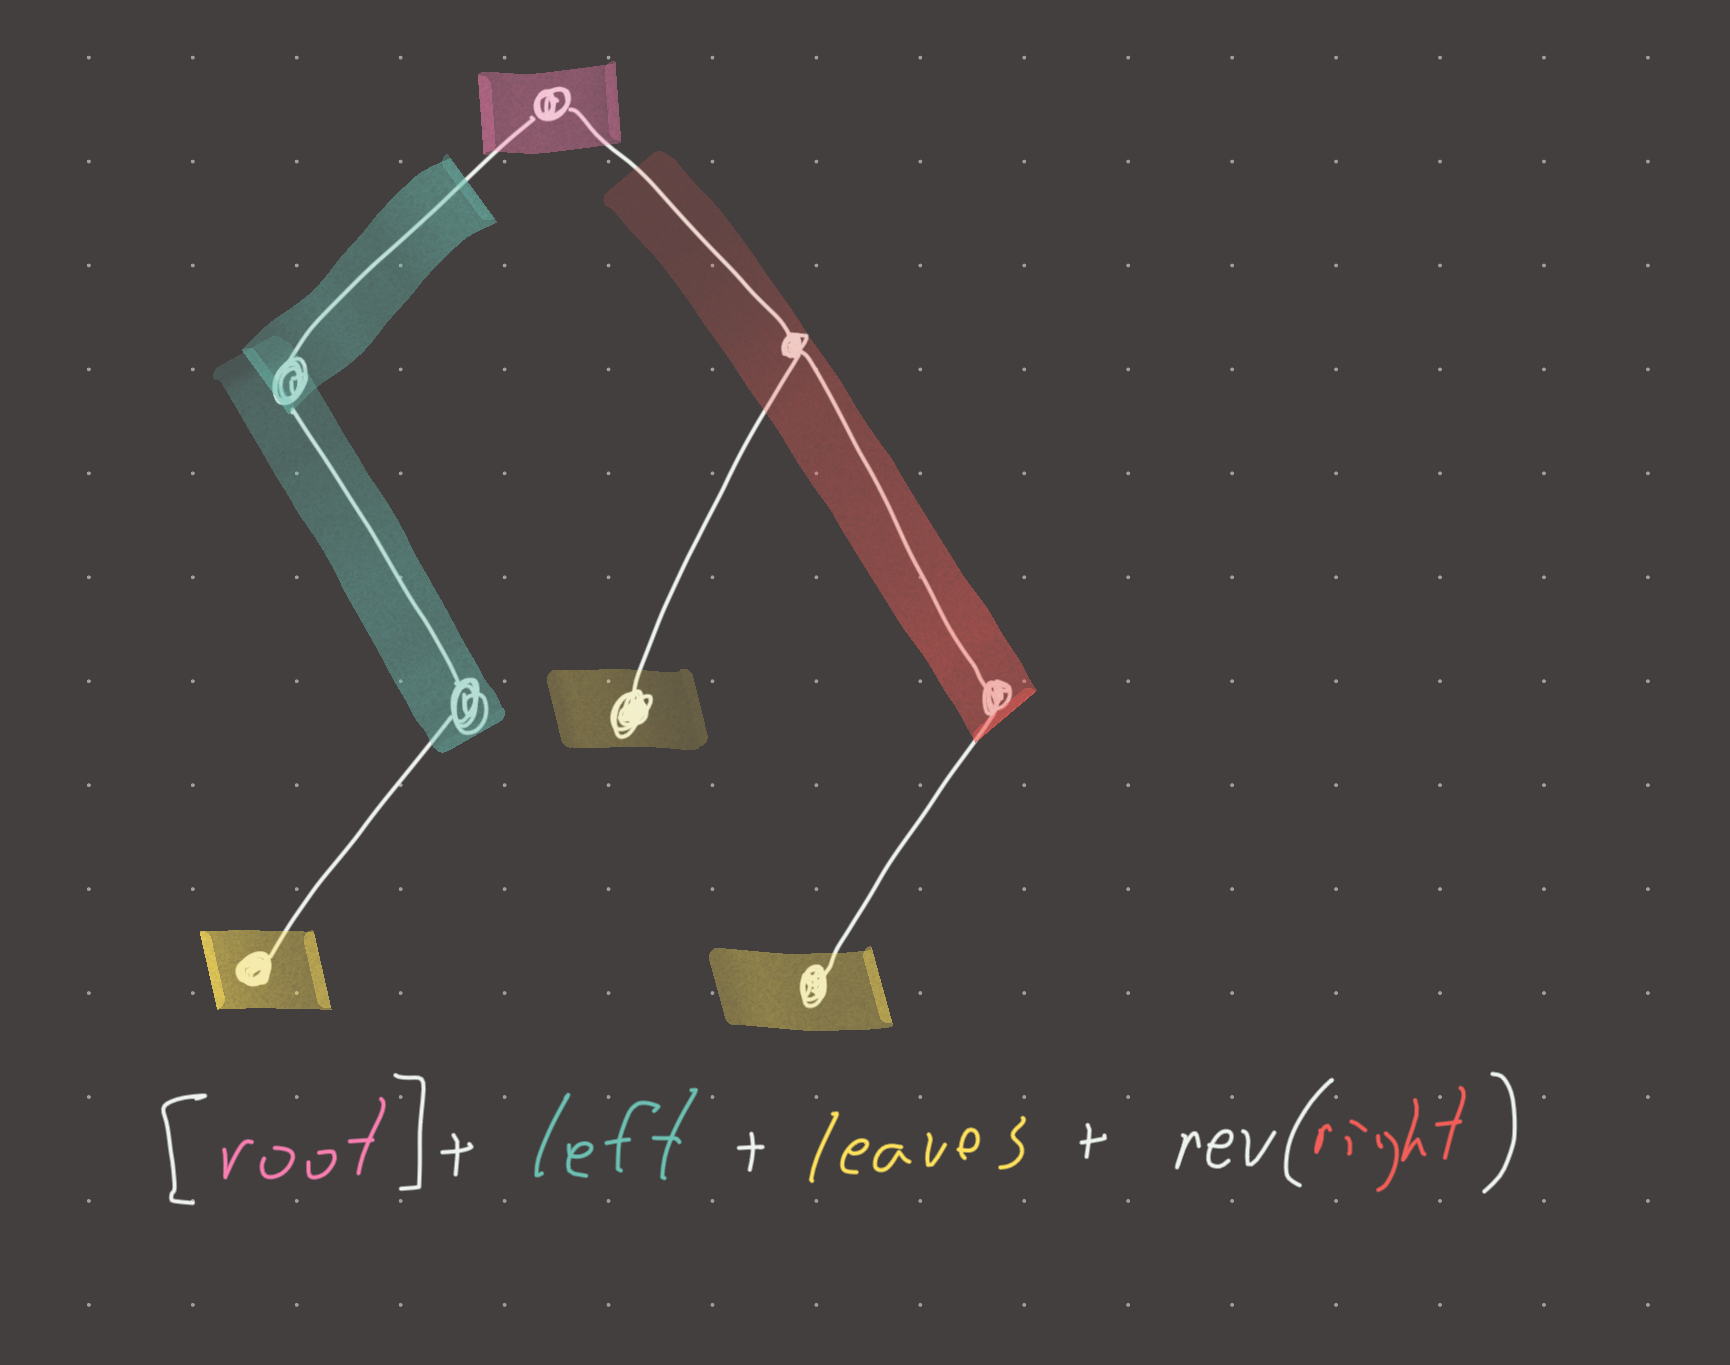 [root] + left + leaves + rev(right)